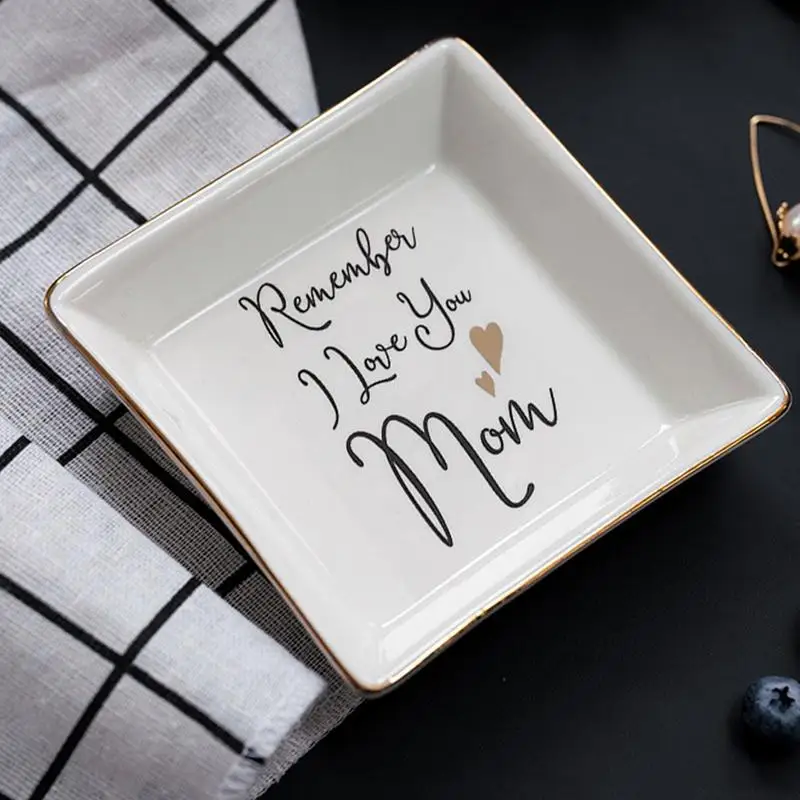 Remember
I Love You
Mom